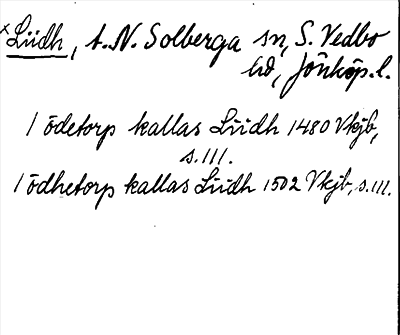 x Lüdh, t. N. Solberga sn, S. Vedbo
hd, Jönköp. l.
1 ödetorp kallas Lüdh 1480 Vkjb,
s. 111.
1 ödhetorp kallas Lüdh 1502 Vkjb, s. 111.